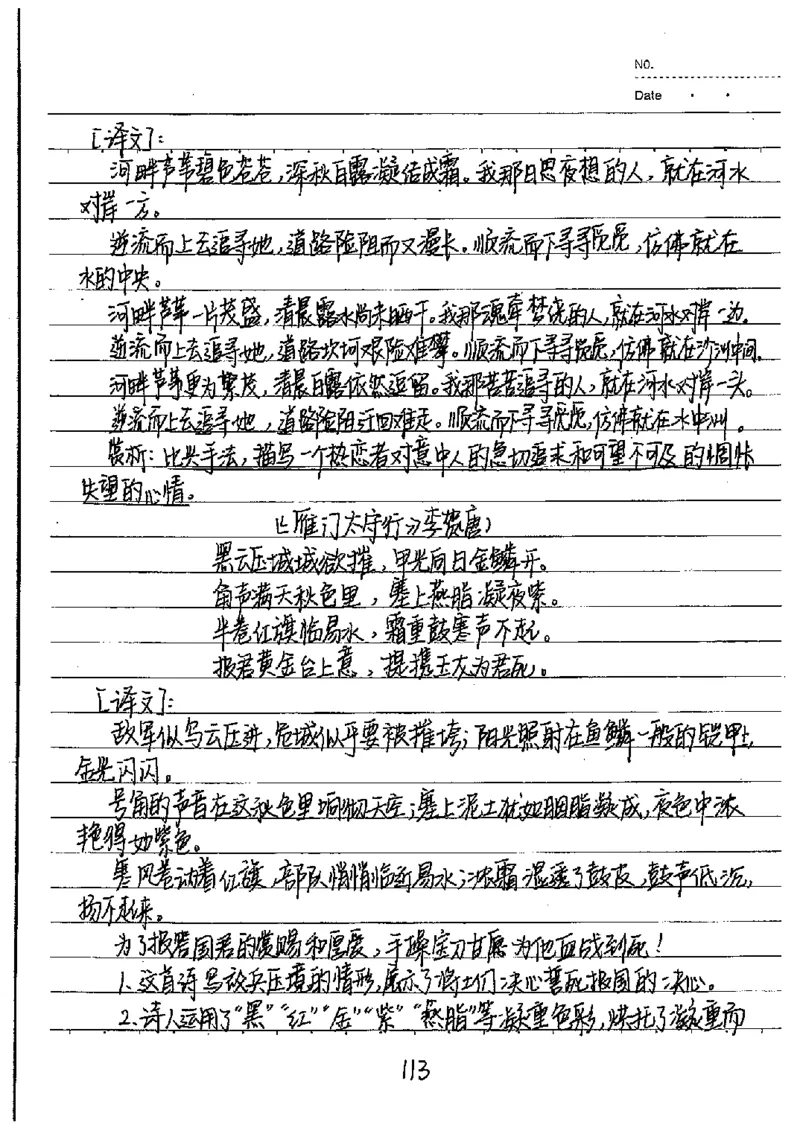 NO.
Date
[译文]:
河畔芦苇碧色苍苍,深秋白露凝结成霜。我那日思夜想的人,就在河水
对岸一方。
逆流而上去追寻她,道路险阻而又漫长。顺流而下寻寻觅觅,仿佛就在
水的中央。
河畔芦苇一片茂盛,清晨露水尚未晒干。我那魂牵梦绕的人,就在河水对岸一边。
逆流而上去追寻她,道路坎坷艰险难攀。顺流而下寻寻觅觅,仿佛就在沙洲中间。
河畔芦苇更为繁茂,清晨白露依然逗留。我那苦苦追寻的人,就在河水对岸一头。
逆流而上去追寻她,道路险阻迂回难走。顺流而下寻寻觅觅,仿佛就在水中洲。
赏析:比兴手法,描写一个热恋者对意中人的急切追求和可望不可及的惆怅
失望的心情。
《雁门太守行》李贺(唐)
黑云压城城欲摧,甲光向日金鳞开。
角声满天秋色里,塞上燕脂凝夜紫。
半卷红旗临易水,霜重鼓寒声不起。
报君黄金台上意,提携玉龙为君死。
[译文]:
敌军似乌云压进,危城似乎要被摧垮;阳光照射在鱼鳞一般的铠甲上,
金光闪闪。
号角的声音在这秋色里响彻天空;塞上泥土犹如胭脂凝成,夜色中浓
艳得如紫色。
寒风卷动着红旗,部队悄悄临近易水;浓霜湿透了鼓皮,鼓声低沉,
扬不起来。
为了报答国君的赏赐和厚爱,手操宝刀甘愿为他血战到死!
1.这首诗写敌兵压境的情形,展示了将士们决心誓死报国的决心。
2.诗人运用了“黑”“红”“金”“紫”“燕脂”等凝重色彩,烘托了凝重而
113